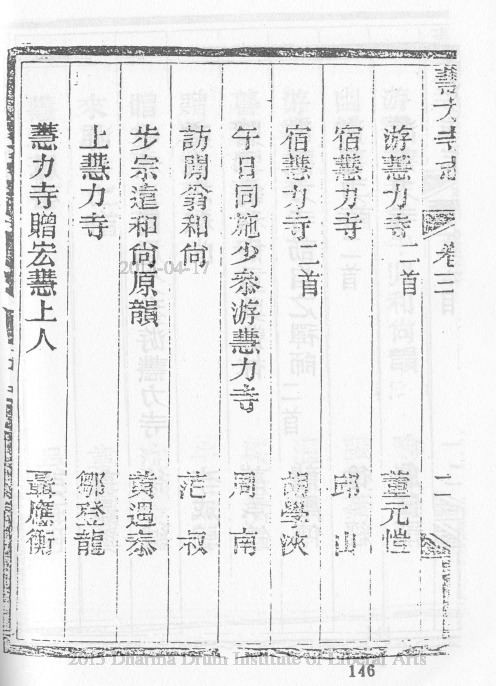 慧力寺志 卷三 二
游慧力寺二首 董元愷
宿慧力寺 邱山
宿慧力寺二首 胡學浹
午日同施少參游慧力寺 周南
訪閒翁和尚 范叔
步宗達和尚原韻 黃遇泰
上慧力寺 鄒登龍
慧力寺贈宏慧上人 聶應衡
2014-04-17
2013 Dharma Drum Institute of Liberal Arts
146